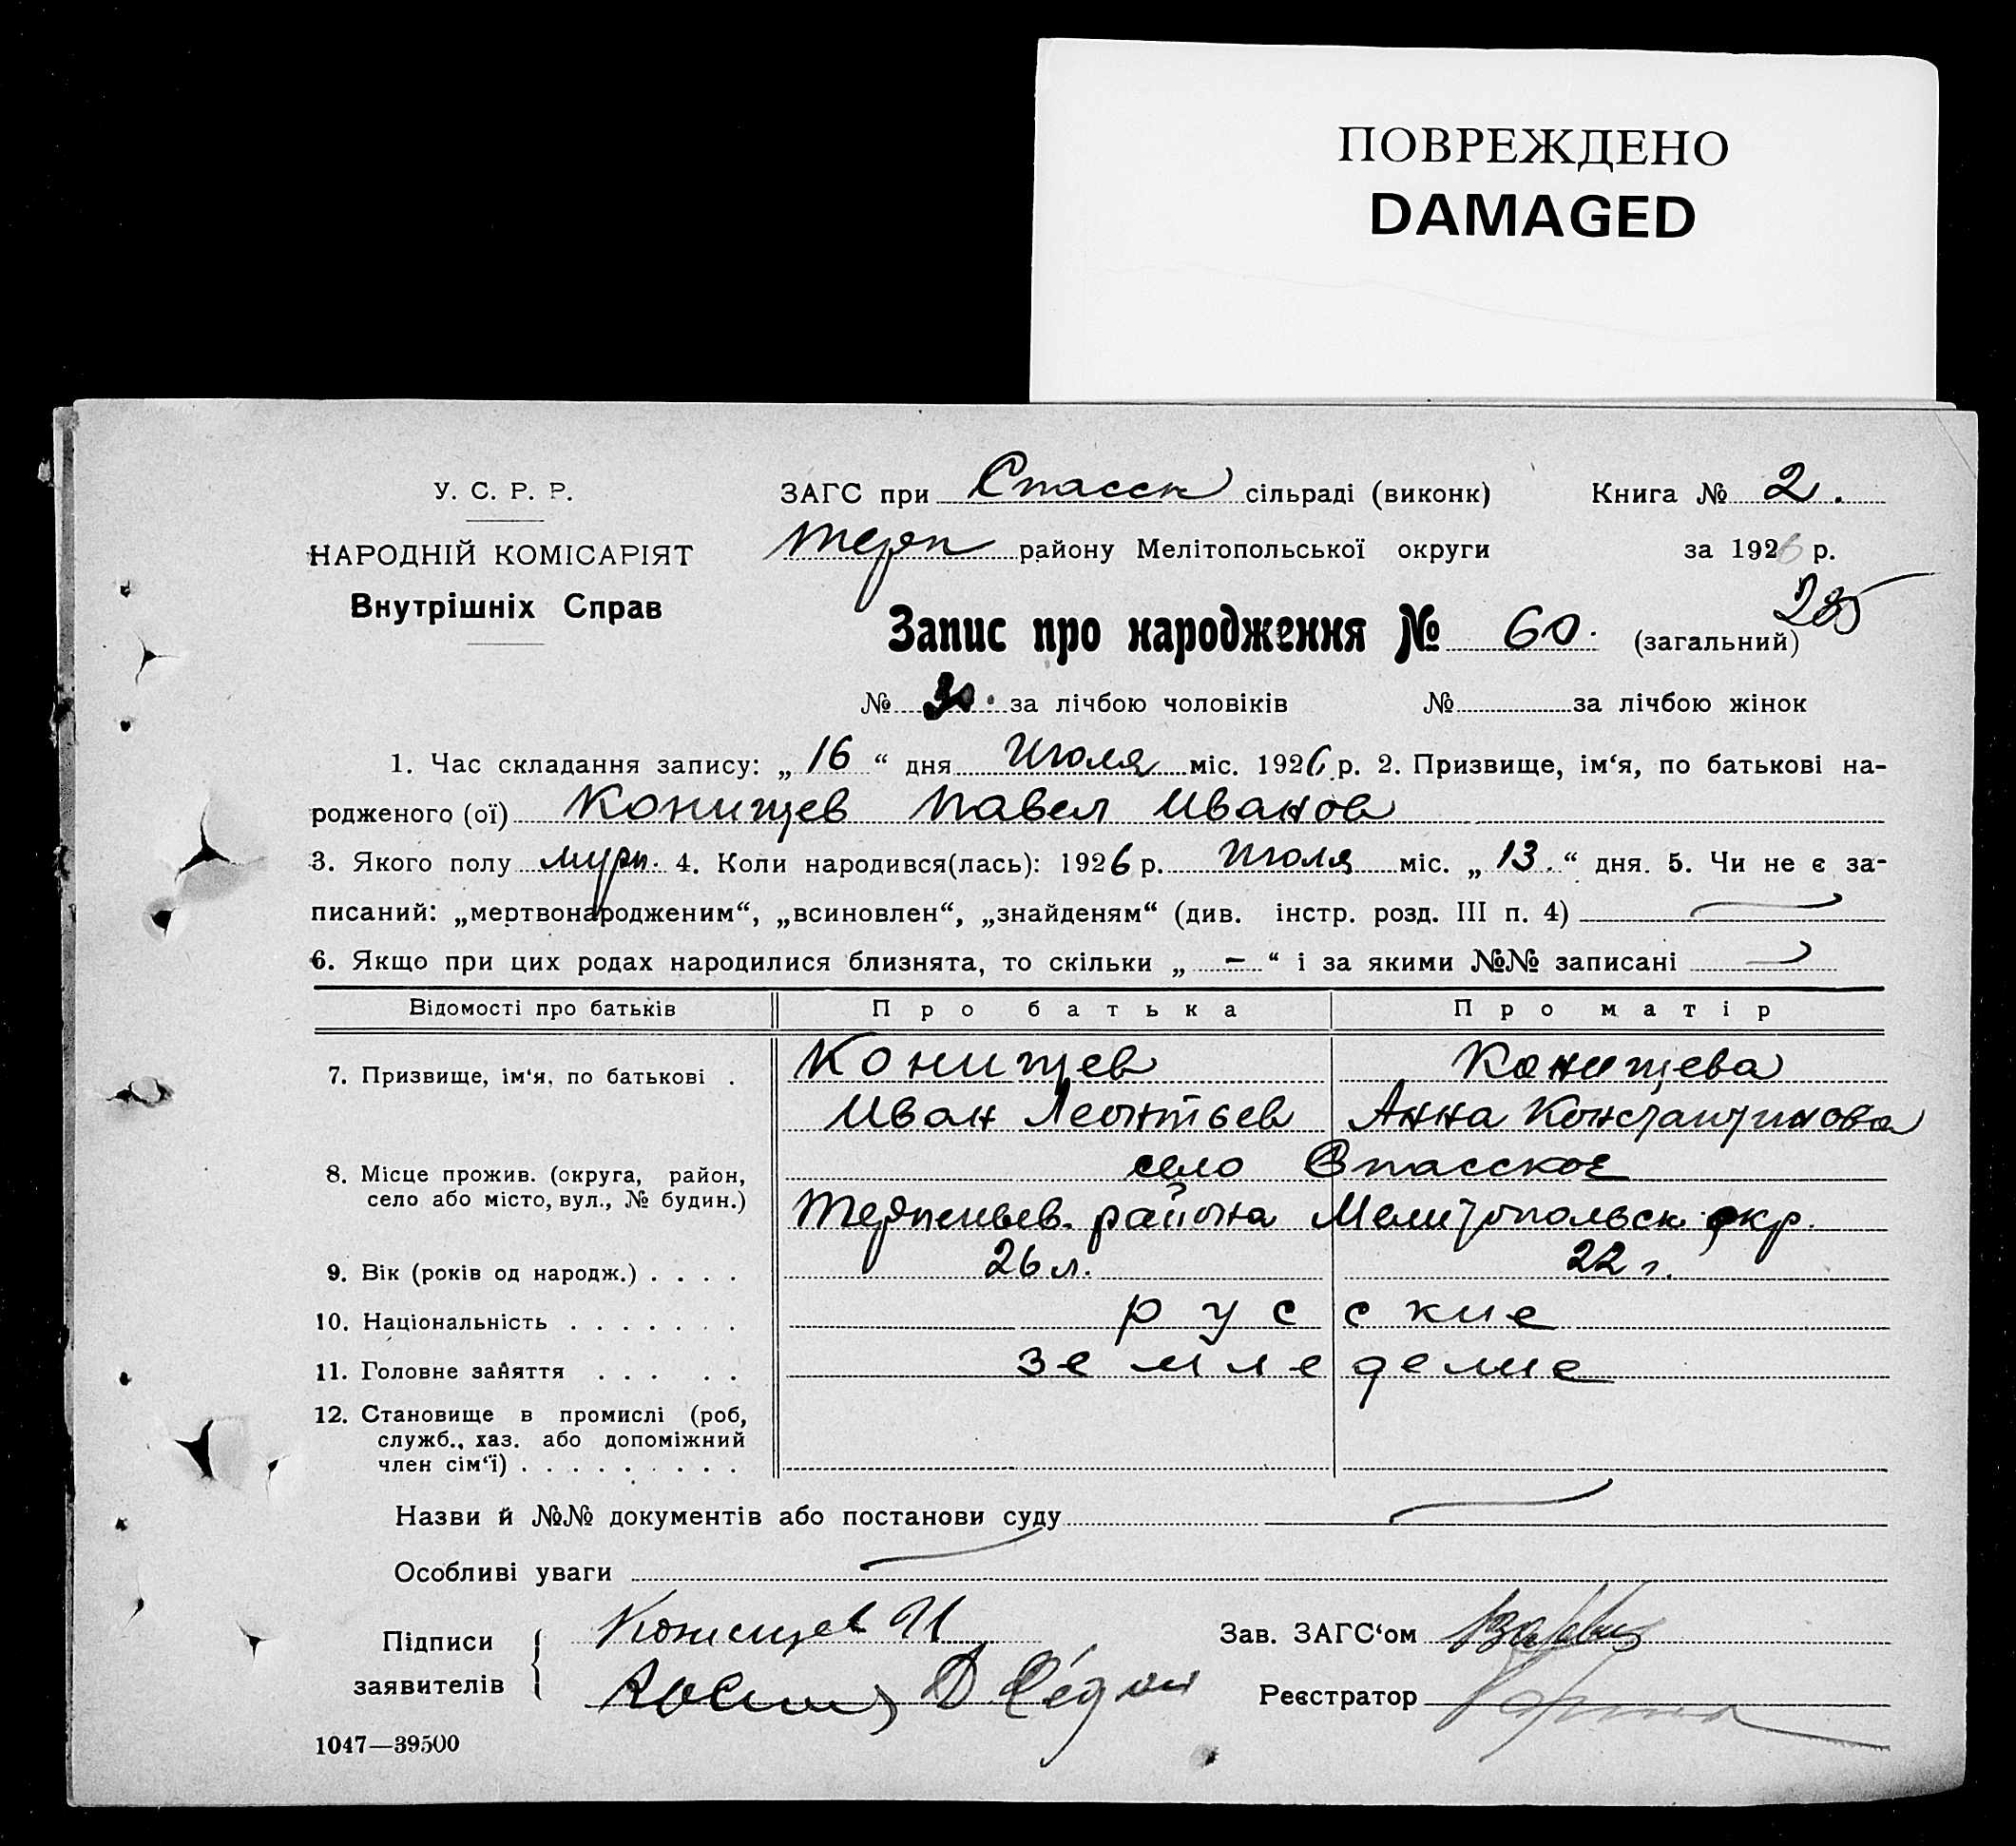 ПОВРЕЖДЕНО
DAMAGED
У. С. Р. Р.
НАРОДНІЙ КОМІСАРІЯТ
Внутрішніх Справ
ЗАГС при Спасск сільраді (виконк) Книга № 2.
Терп району Мелітопольської округи за 1926 р.
235
Запис про народження № 60. (загальний)
№ 30. за лічбою чоловіків № за лічбою жінок
1. Час складання запису: „16“ дня Июля міс. 1926 р. 2. Призвище, ім‘я, по батькові на-
родженого (ої) Конищев Павел Иванов
3. Якого полу муж. 4. Коли народився(лась): 1926 р. Июля міс. „13.“ дня. 5. Чи не є за-
писаний: „мертвонародженим“, „всиновлен“, „знайденям“ (див. інстр. розд. III п. 4)
6. Якщо при цих родах народилися близнята, то скільки „ – “ і за якими №№ записані
Відомості про батьків Про батька Про матір
7. Призвище, ім‘я, по батькові . Конищев Конищева
Иван Леонтьев Анна Константинова
8. Місце прожив. (округа, район, село або місто, вул., № будин.) село Спасское
Терпеньев. района Мелитопольск. окр.
9. Вік (років од народж.) . . . . 26 л. 22 г.
10. Національність . . . . . . . русские
11. Головне заняття . . . . . земледелие
12. Становище в промислі (роб,
служб., хаз. або допоміжний
член сім‘ї) . . . . . . . . .
Назви й №№ документів або постанови суду
Особливі уваги
Підписи заявителів Конищев И
Зав. ЗАГС‘ом
Реєстратор
1047—39500